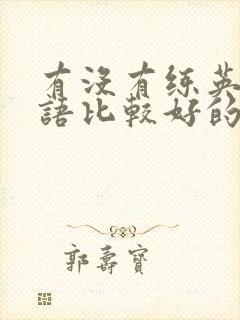 有没有练英
語比較好的
郭壽寶